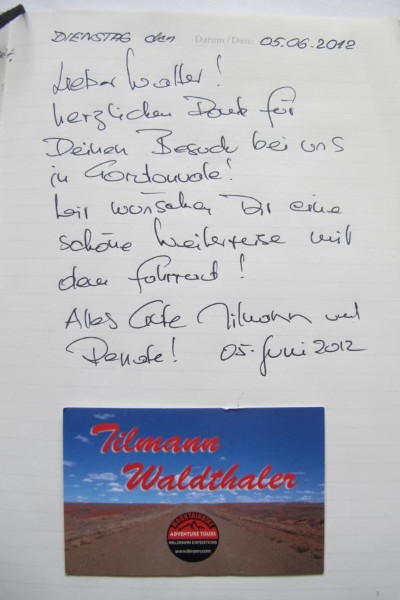 DIENSTAG den Datum / Date: 05.06.2012
Lieber Walter!
herzlichen Dank für
Deinen Besuch bei uns
in
Wir wünschen Dir eine
schöne Weiterreise mit
dem Fahrrad!
Alles Gute Tilmann und
Renate! 05. Juni 2012
Tilmann
Waldthaler
ADVENTURE TOURS